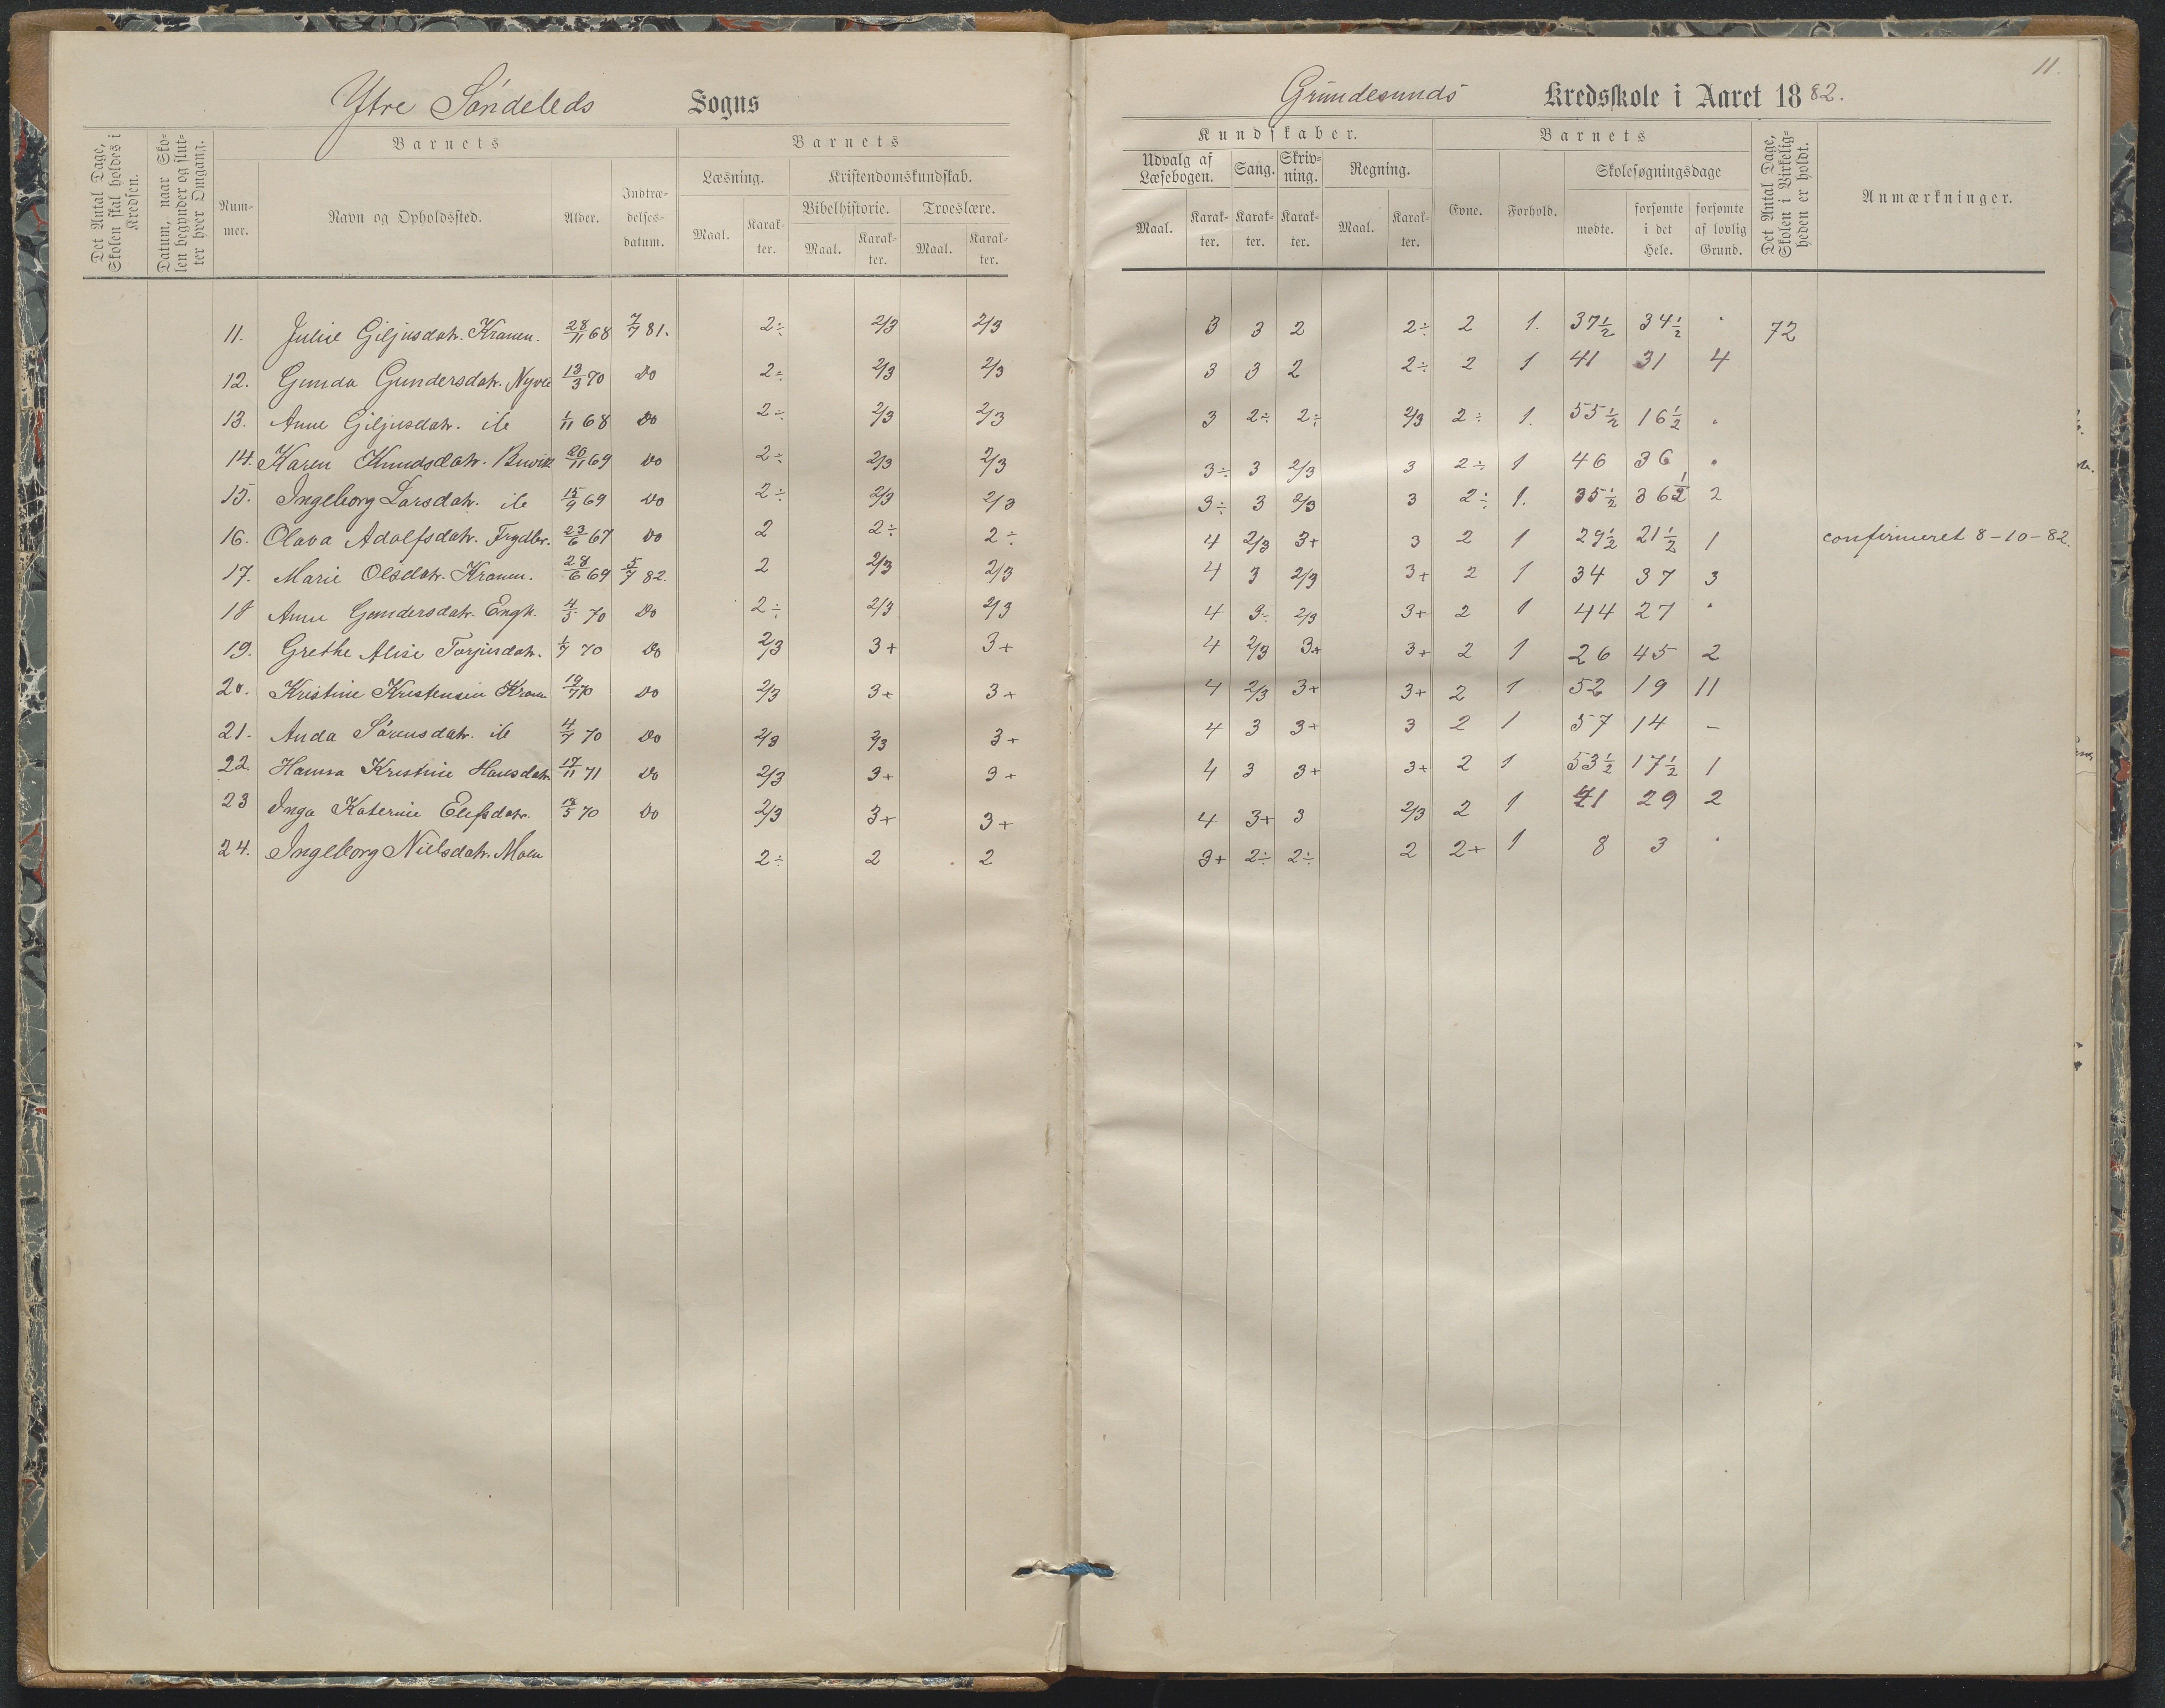 Ytre Söndeleds Sogns
Det Antal Dage, Skolen skal holdes i Kredsen.
Datum, naar Skolen begynder og slutter hver Omgang.
Barnets
Nummer.
Navn og Opholdssted.
Alder.
Indtrædelsesdatum.
Barnets
Læsning.
Maal.
Karakter.
Kristendomskundskab.
Bibelhistorie.
Maal.
Karakter.
Troeslære.
Maal.
Karakter.
11. Julie Giljusdatr. Kranen. 28/11 68 7/7 81. 2÷ 2/3 2/3
12. Gunda Gundersdatr. 13/3 70 Do 2÷ 2/3 2/3
13. Anne Giljusdatr. ib 1/11 68 Do 2÷ 2/3 2/3
14. Karen Knudsdatr. 20/11 69 Do 2÷ 2/3 2/3
15. Ingeborg Larsdatr. ib 15/9 69 Do 2÷ 2/3 2/3
16. Olava Adolfsdatr. 23/6 67 Do 2 2÷ 2÷
17. Marie Olsdatr. Kranen. 28/6 69 5/7 82. 2 2/3 2/3
18 Anne Gundersdatr. Engh. 4/5 70 Do 2÷ 2/3 2/3
19. Grethe Alise Torjusdatr. 1/7 70 Do 2/3 3+ 3+
20. Kristine Kristensen Kranen 19/7 70 Do 2/3 3+ 3+
21. Anda Sörensdatr. ib 4/7 70 Do 2/3 2/3 3+
22. Hanna Kristine Hansdatr 17/11 71 Do 2/3 3+ 3+
23 Inga Katerine 18/5 70 Do 2/3 3+ 3+
24. Ingeborg Nielsdatr. Moen 2÷ 2 2
11.
Grundesunds Kredsskole i Aaret 1882.
Kundskaber.
Udvalg af Læsebogen.
Maal.
Karakter.
Sang.
Karakter.
Skrivning.
Karakter.
Regning.
Maal.
Karakter.
Barnets
Evne.
Forhold.
Skolesøgningsdage
mødte.
forsømte i det Hele.
forsømte af lovlig Grund.
Det Antal Dage, Skolen i Virkeligheden er holdt.
Anmærkninger.
3 3 2 2÷ 2 1. 37 1/2 34 1/2 " 72
3 3 2 2÷ 2 1 41 31 4
3 2÷ 2÷ 2/3 2÷ 1. 55 1/2 16 1/2 "
3÷ 3 2/3 3 2÷ 1 46 36 "
3÷ 3 2/3 3 2÷ 1. 35 1/2 36 1/2 2
4 2/3 3+ 3 2 1 29 1/2 21 1/2 1 confirmeret 8-10-82.
4 3 2/3 3+ 2 1 34 37 3
4 3÷ 2/3 3+ 2 1 44 27 "
4 2/3 3+ 3+ 2 1 26 45 2
4 2/3 3+ 3+ 2 1 52 19 11
4 3 3+ 3 2 1 57 14 -
4 3 3+ 3+ 2 1 53 1/2 17 1/2 1
4 3+ 3 2/3 2 1 41 29 2
3+ 2÷ 2÷ 2 2+ 1 8 3 "